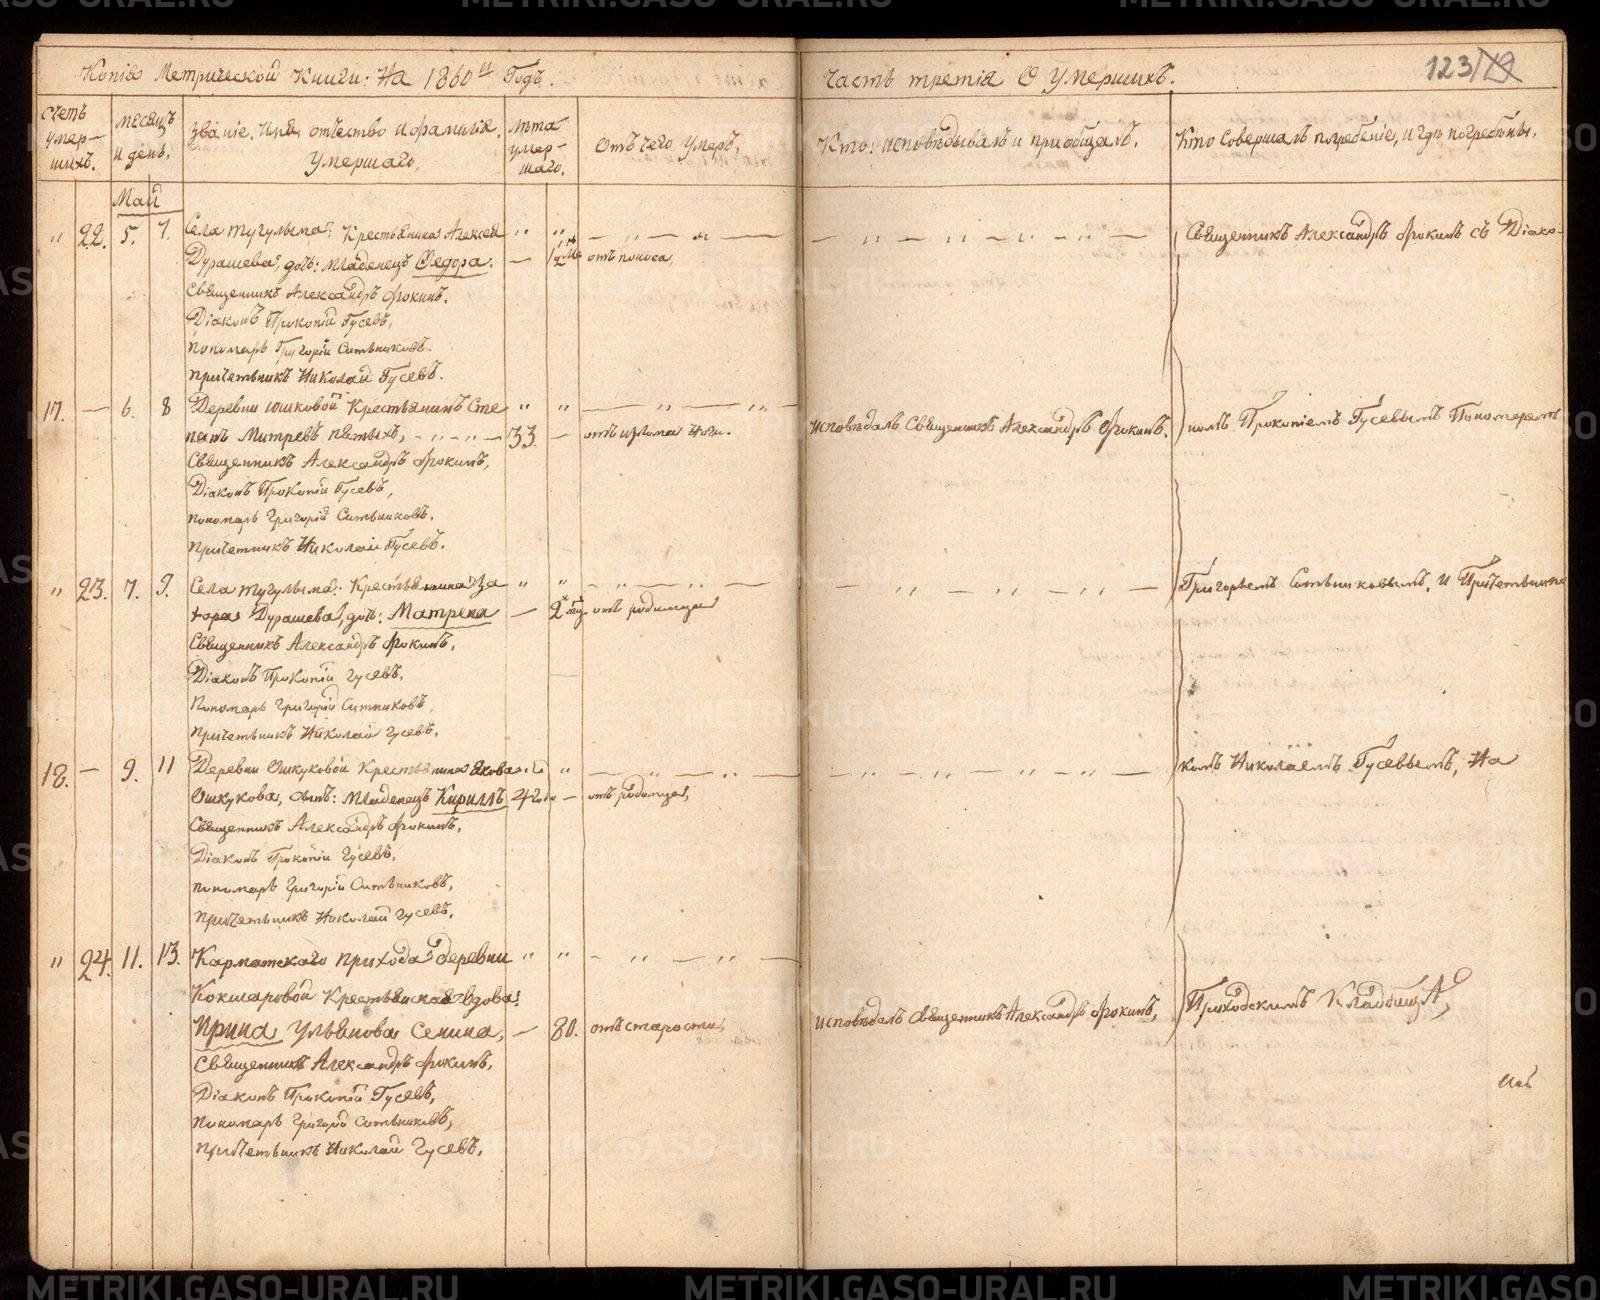 Копія Метрической Книги: На 1860й Годъ.
Часть третія О Умершихъ.
123
Счетъ умер-шихъ.
Месяцъ и день.
Званіе, Имя, отчество и фамилія, Умершаго,
Лѣта умер-шаго.
Отъ чего умеръ,
Кто: исповѣдывалъ и приобщалъ.
Кто Совершалъ погребеніе, и гдѣ погребены,
Май
" 22. 5. 7. Села тугулыма: Крестьянина Алексея " "
Дурашева, дочь: Младенецъ Федора. — отъ поноса
Священникъ Александръ Фокинъ.
Діаконъ Прокопій Гусевъ,
пономарь Григорій Ситьниковъ.
причетникъ Николай Гусевъ.
Священникъ Александръ Фокинъ съ Діако-
17. — 6. 8 Деревни юшковой Крестьянинъ Сте " "
панъ Митревъ пятыхъ, 33. — отъ излома Ноги.
Священникъ Александръ Фокинъ,
Діаконъ Прокопій Гусевъ,
пономарь Григорій Ситьниковъ,
причетникъ Николай Гусевъ.
исповѣдалъ Священникъ Александръ Фокинъ.
номъ Прокопіемъ Гусевымъ Пономаремъ
" 23. 7. 9. Села тугулыма: Крестьянина За " "
хара Дурашева, дочь: Матрена — отъ родимца
Священникъ Александръ Фокинъ,
Діаконъ Прокопій Гусевъ,
Пономарь Григорій Ситниковъ,
причетьникъ Николай Гусевъ,
Григорьемъ Ситьниковымъ, и Причетьни
18. — 9. 11 Деревни Ошкуковой Крестьянина Якова "
Ошкукова, сынъ: Младенецъ Кириллъ — отъ родимца,
Священникъ Александръ Фокинъ,
Діаконъ Прокопій Гусевъ,
пономарь Григорій Ситьниковъ,
причетьникъ Николай Гусевъ,
комъ Николаемъ Гусевымъ, На
" 24. 11. 13. Кармакского прихода деревни " "
Кокшаровой Крестьянская вдова:
Ирина Ульянова Сенина, — 80. отъ старости,
Священникъ Александръ Фокинъ,
Діаконъ Прокопій Гусевъ,
пономарь Григорій Ситьниковъ,
причетьникъ Николай Гусевъ,
исповѣдалъ Священникъ Александръ Фокинъ,
Приходскимъ Кладбищѣ,
METRIKI.GASO-URAL.RU